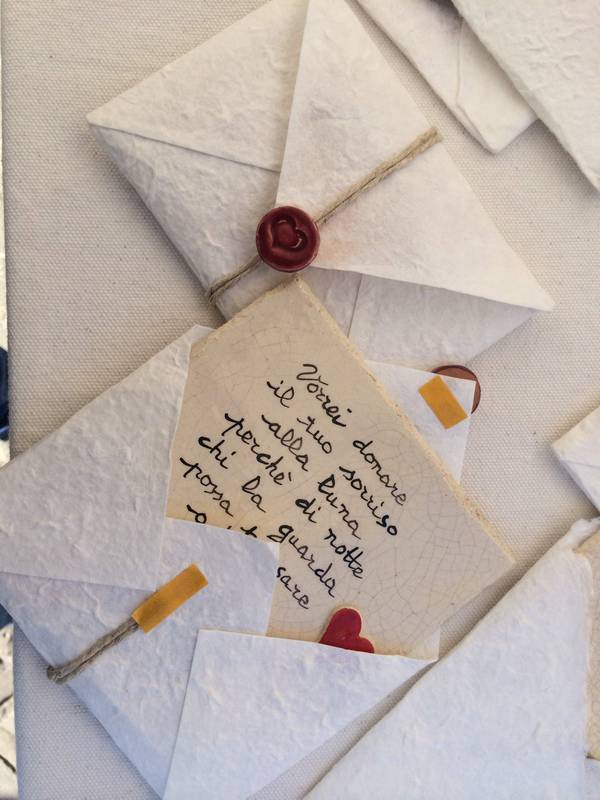 Vorrei donare
il tuo sorriso
alla luna
perchè di notte
chi la guarda
possa